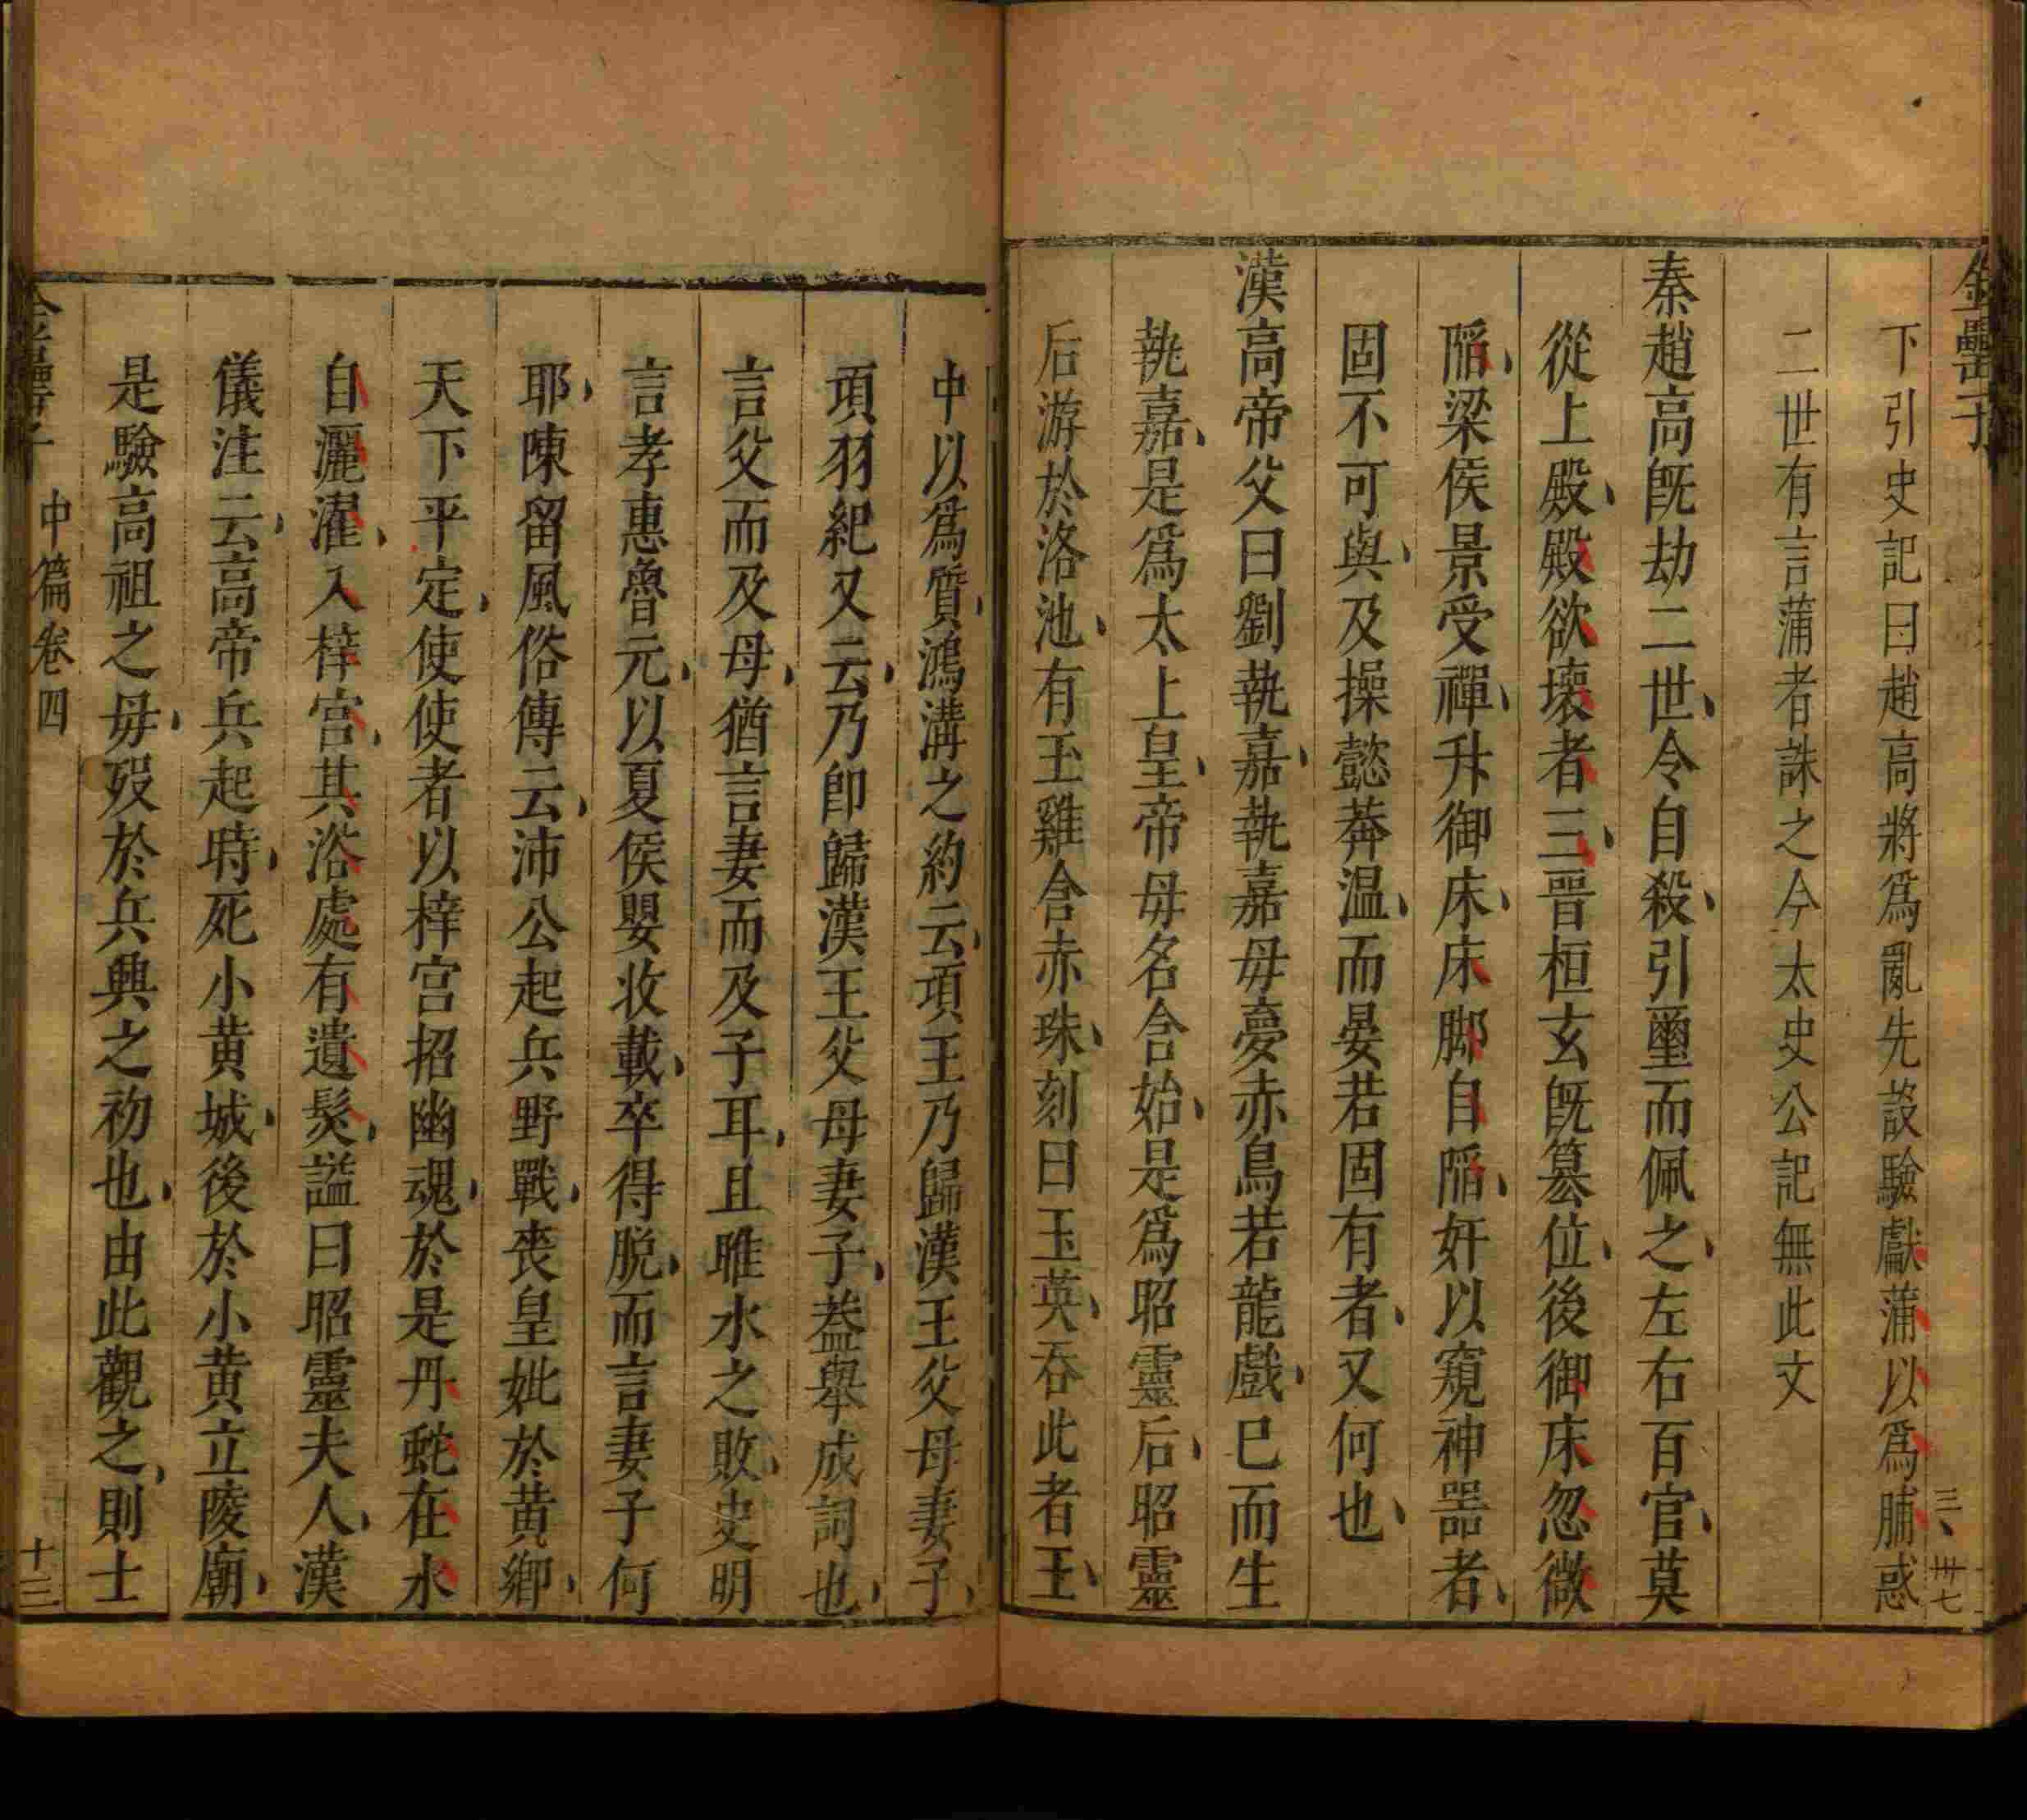 金罍子
三 卅七
下引史記曰趙高將爲亂先設驗獻蒲以爲脯惑
二世有言蒲者誅之今太史公記無此文
秦趙高旣劫二世令自殺引璽而佩之左右百官莫
從上殿殿欲壞者三晉桓玄旣篡位後御床忽微
陷梁侯景受禪升御床床脚自陷奸以窺神器者
固不可與及操懿莽温而晏若固有者又何也
漢高帝父曰劉執嘉執嘉母夢赤鳥若龍戲巳而生
執嘉是爲太上皇帝母名含始是爲昭靈后昭靈
后游於洛池有玉雞含赤珠刻曰玉英吞此者王
中以爲質鴻溝之約云項王乃歸漢王父母妻子
項羽紀又云乃卽歸漢王父母妻子葢舉成詞也
言父而及母猶言妻而及子耳且睢水之敗史明
言孝惠魯元以夏侯嬰收載卒得脱而言妻子何
耶陳留風俗傳云沛公起兵野戰喪皇妣於黄鄉
天下平定使使者以梓宫招幽魂於是丹蛇在水
自灑濯入梓宫其浴處有遺髮謚曰昭靈夫人漢
儀注云高帝兵起時死小黄城後於小黄立陵廟
是驗高祖之母殁於兵興之初也由此觀之則士
金罍子 中篇卷四 十三